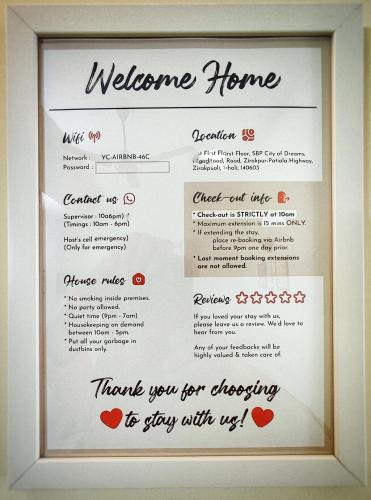 Welcome Home
Wifi
Network : YC-AIRBNB-46C
Password :
Location
Floor, SBP City of Dreams,
Road, Zirakpur-Patiala Highway,
140603
Contact us
Supervisor :
(Timings : 10am - 6pm)
Host's cell emergency)
(Only for emergency)
Check-out info
* Check-out is STRICTLY at 10am
* Maximum extension is 15 mins ONLY.
* If extending the stay,
place re-booking via Airbnb
before 9pm one day prior.
* Last moment booking extensions
are not allowed.
House rules
* No smoking inside premises.
* No party allowed.
* Quiet time (9pm - 7am)
* Housekeeping on demand
between 10am - 5pm.
* Put all your garbage in
dustbins only.
Reviews
If you loved your stay with us,
please leave us a review. We'd love to
hear from you.
Any of your feedbacks will be
highly valued & taken care of.
Thank you for choosing
to stay with us!